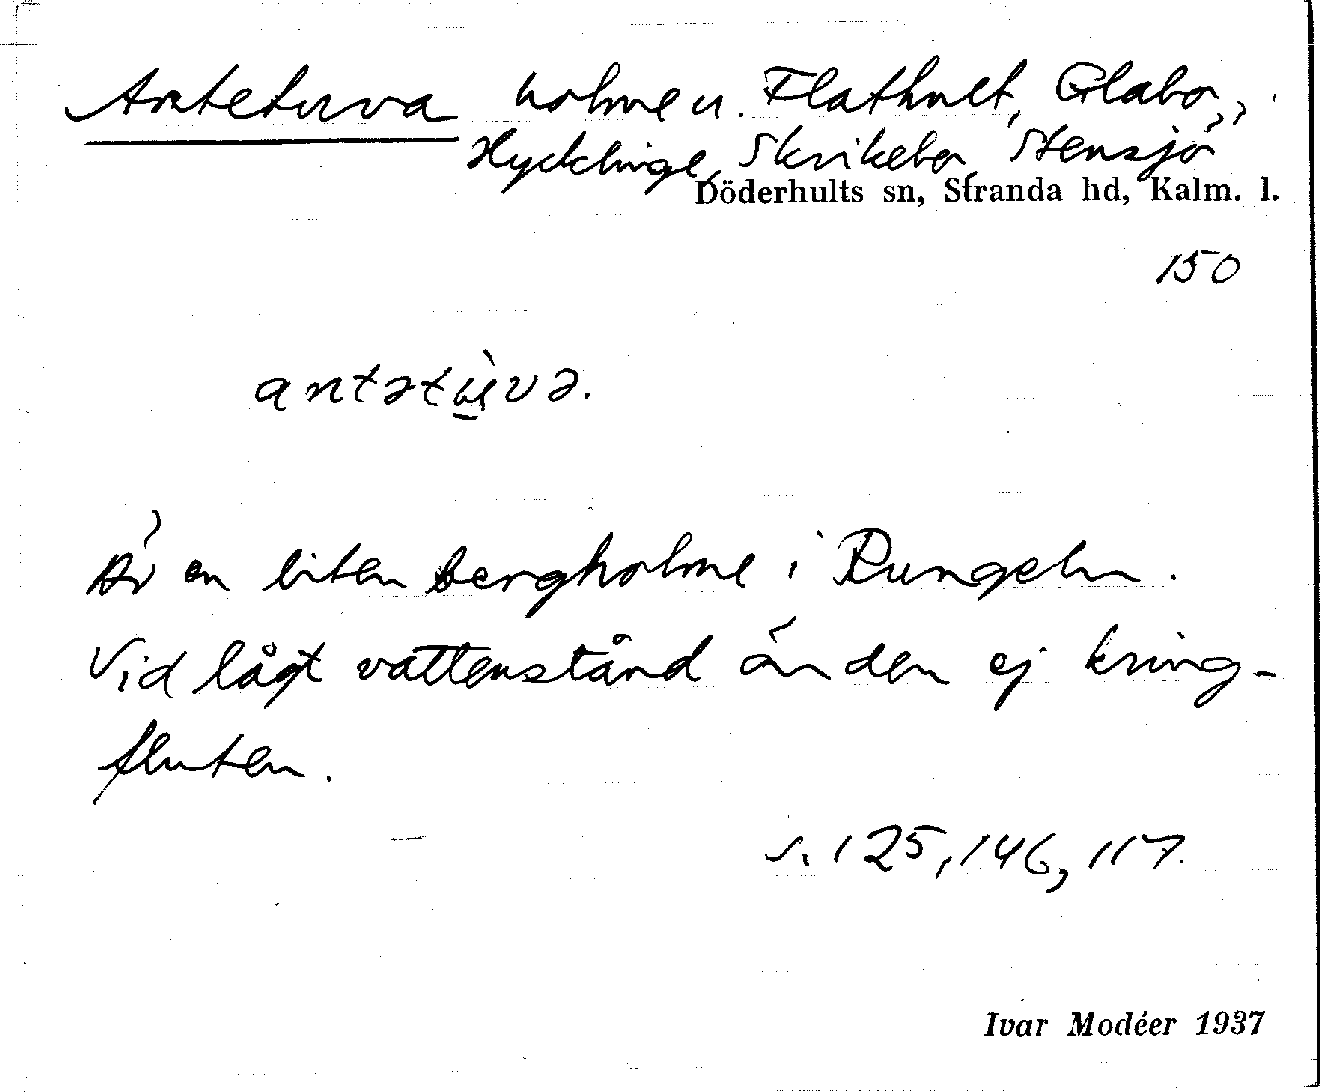 Antetuva holme u. Flathult, Glabo,
Hycklinge, Skrikebo, Stensjö
Döderhults sn, Stranda hd, Kalm. l.
150
antətù̲və.
Är en liten bergholme i Rungeln.
Vid lågt vattenstånd är den ej kring-
fluten.
s. 125, 146, 117.
Ivar Modéer 1937